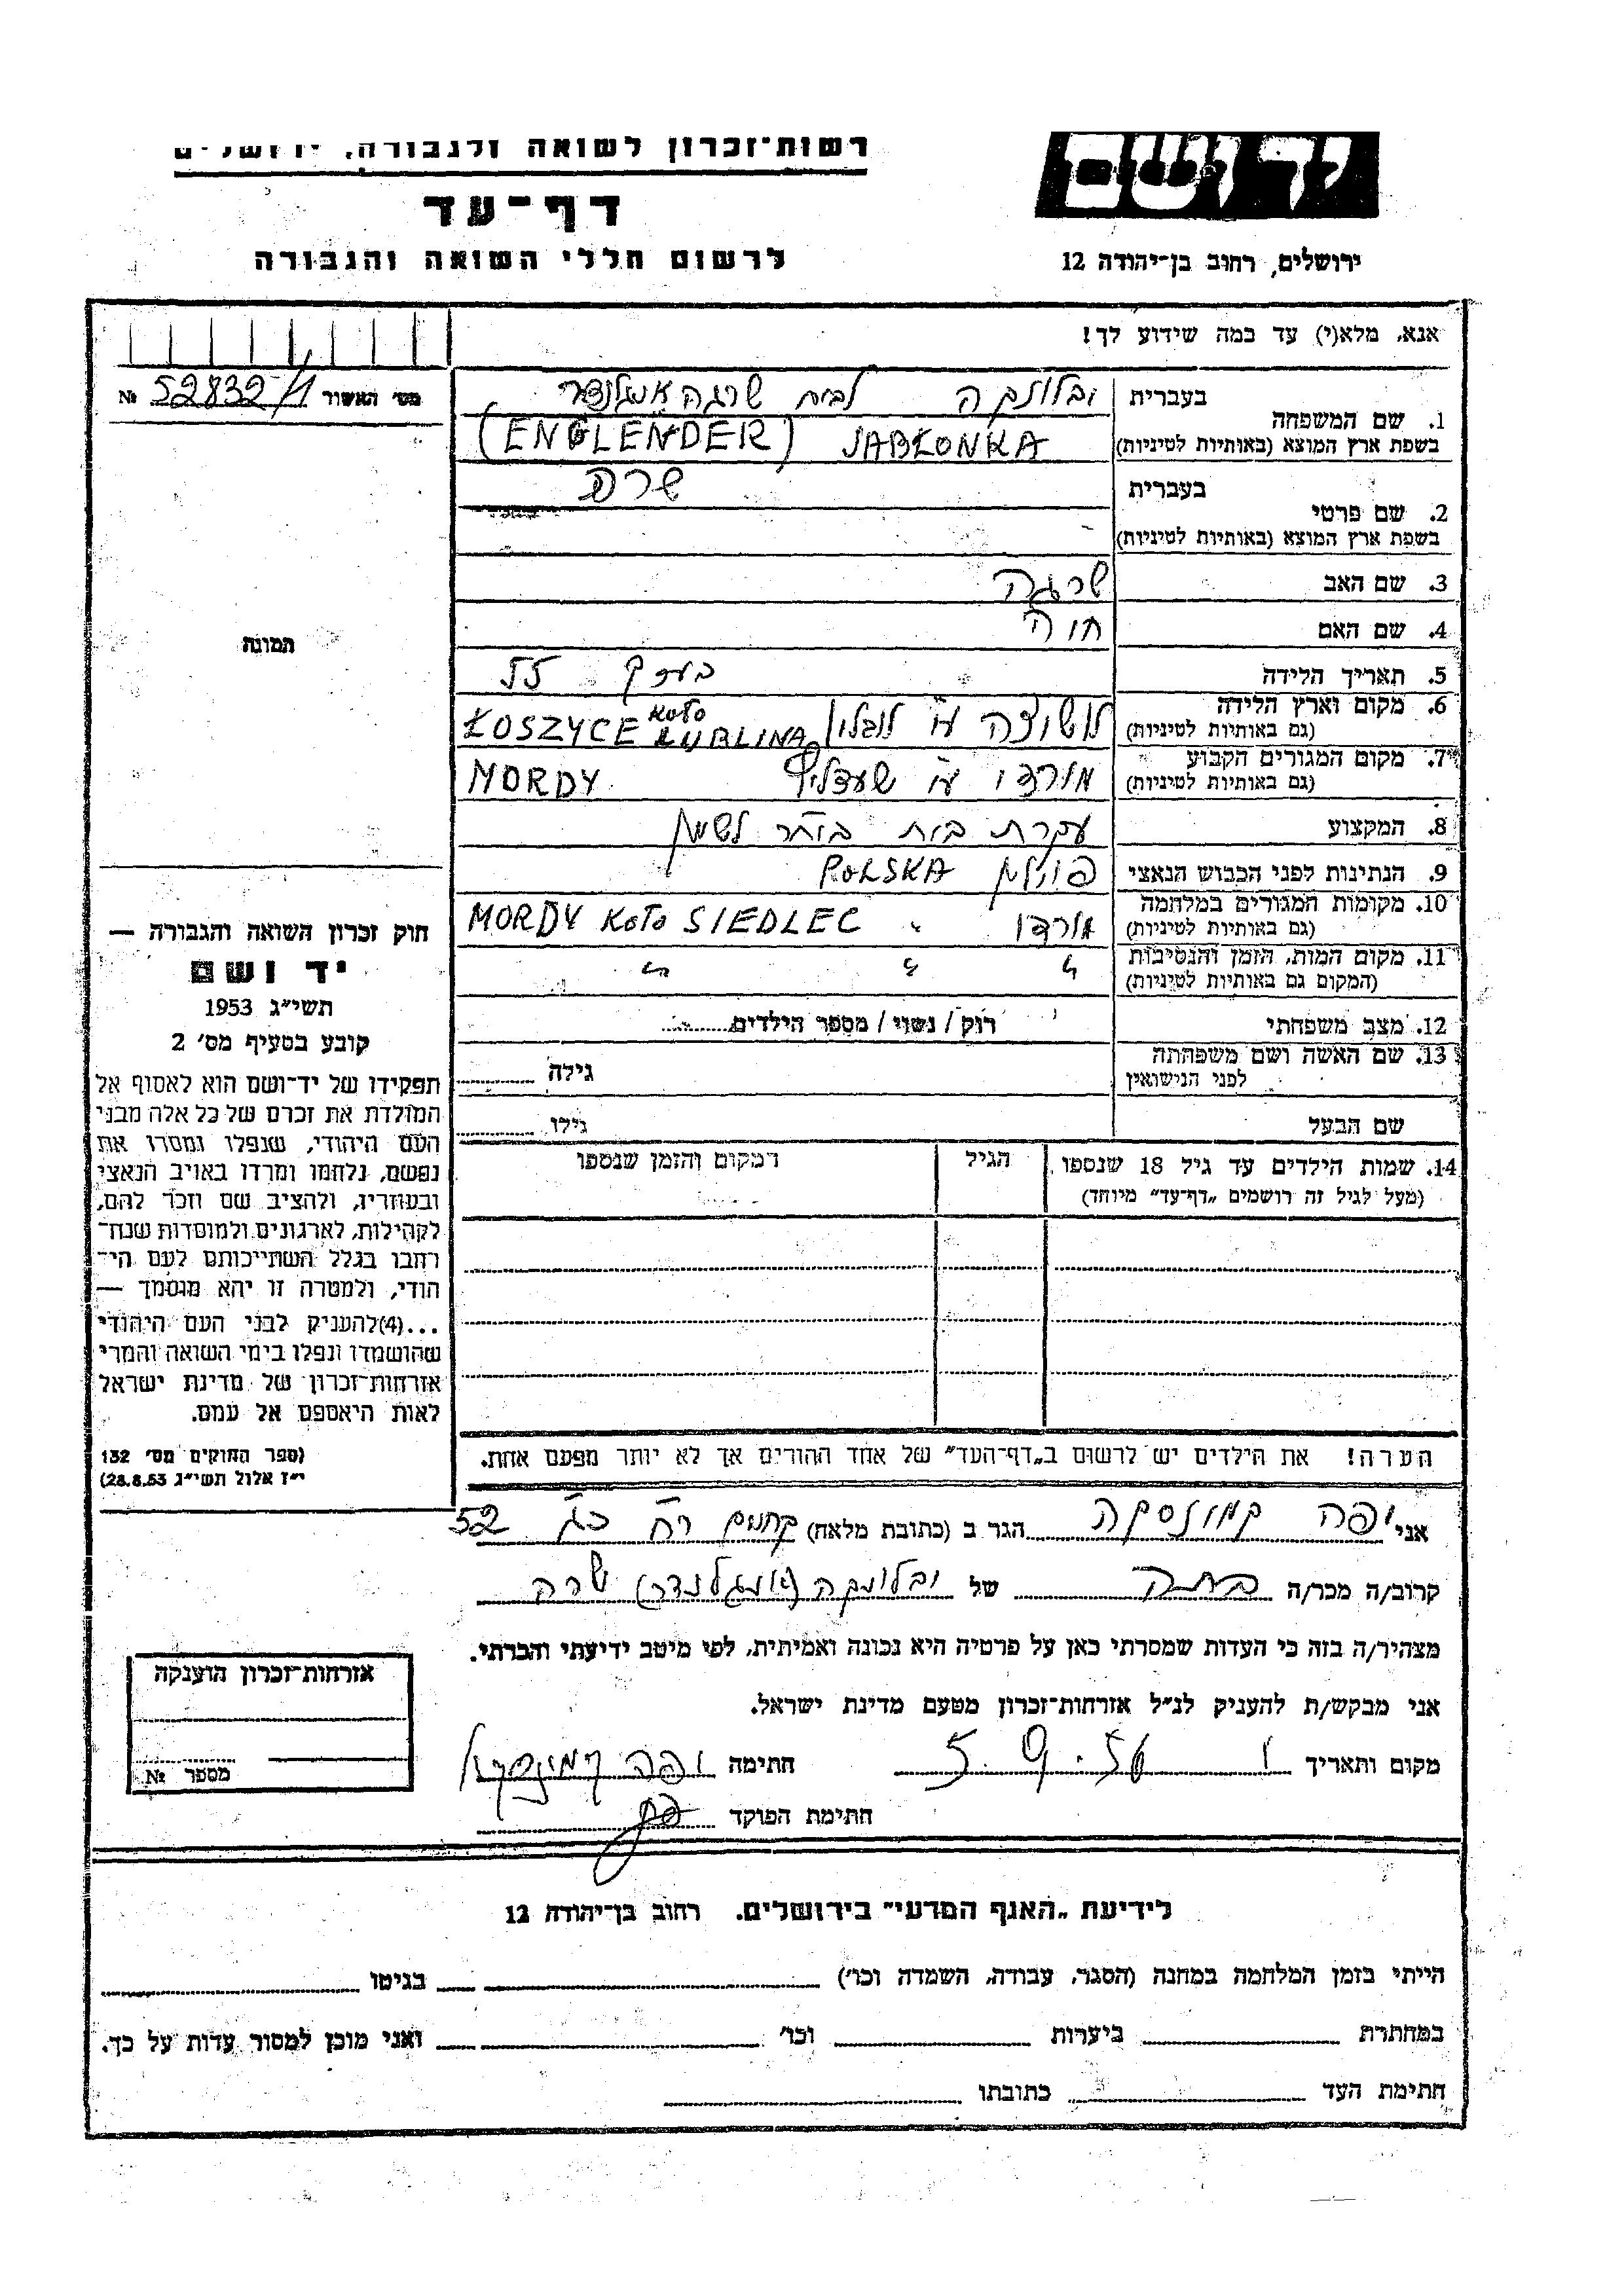 רשות־זכרון לשואה ולגבורה, ירושלים
יד ושם
דף־עד
לרשום חללי השואה והגבורה
ירושלים, רחוב בן־יהודה 12
אנא, מלא(י) עד כמה שידוע לך!
מס׳ האשור 52832/1 №
1. שם המשפחה
בעברית יבלונקה לבית שרגה אנגלנדר
בשפת ארץ המוצא (באותיות לטיניות) JABŁONKA (ENGLENDER)
2. שם פרטי
בעברית שרה
בשפת ארץ המוצא (באותיות לטיניות)
3. שם האב שרגה
4. שם האם חוה
5. תאריך הלידה בערך 55
6. מקום וארץ הלידה
(גם באותיות לטיניות) לושיצה ע״י לובלין ŁOSZYCE KOŁO LUBLINA
7. מקום המגורים הקבוע
(גם באותיות לטיניות) מורדי ע״י MORDY
8. המקצוע עקרת בית
9. הנתינות לפני הכבוש הנאצי פולין POLSKA
10. מקומות המגורים במלחמה
(גם באותיות לטיניות) מורדי MORDY KOŁO SIEDLEC
11. מקום המות, הזמן והנסיבות
(המקום גם באותיות לטיניות)
12. מצב משפחתי רוק / נשוי / מספר הילדים
13. שם האשה ושם משפחתה
לפני הנישואין גילה
שם הבעל גילו
14. שמות הילדים עד גיל 18 שנספו הגיל המקום והזמן שנספו
(מעל לגיל זה רושמים „דף־עד” מיוחד)
הערה! את הילדים יש לרשום ב„דף־העד” של אחד ההורים אך לא יותר מפעם אחת.
תמונה
חוק זכרון השואה והגבורה —
יד ושם
תשי״ג 1953
קובע בסעיף מס׳ 2
תפקידו של יד־ושם הוא לאסוף אל
המולדת את זכרם של כל אלה מבני
העם היהודי, שנפלו ומסרו את
נפשם, נלחמו ומרדו באויב הנאצי
ובעוזריו, ולהציב שם וזכר להם,
לקהילות, לארגונים ולמוסדות שנח־
רבו בגלל השתייכותם לעם הי־
הודי, ולמטרה זו יהא מוסמך —
...(4)להעניק לבני העם היהודי
שהושמדו ונפלו בימי השואה והמרי
אזרחות־זכרון של מדינת ישראל
לאות היאספם אל עמם.
(ספר החוקים מס׳ 132
י״ז אלול תשי״ג 28.8.53)
אני יפה קמינסקה הגר ב (כתובת מלאה) 52
קרוב/ה מכר/ה של יבלונקה (אנגלנדר) שרה
מצהיר/ה בזה כי העדות שמסרתי כאן על פרטיה היא נכונה ואמיתית, לפי מיטב ידיעתי והכרתי.
אני מבקש/ת להעניק לנ״ל אזרחות־זכרון מטעם מדינת ישראל.
מקום ותאריך 5.9.56 חתימה יפה קמינסקי
חתימת הפוקד
אזרחות־זכרון הוענקה
מספר №
לידיעת „האגף המדעי” בירושלים. רחוב בן־יהודה 12
הייתי בזמן המלחמה במחנה (הסגר, עבודה, השמדה וכו׳) בגיטו
במחתרת ביערות וכו׳ ואני מוכן למסור עדות על כך.
חתימת העד כתובתו